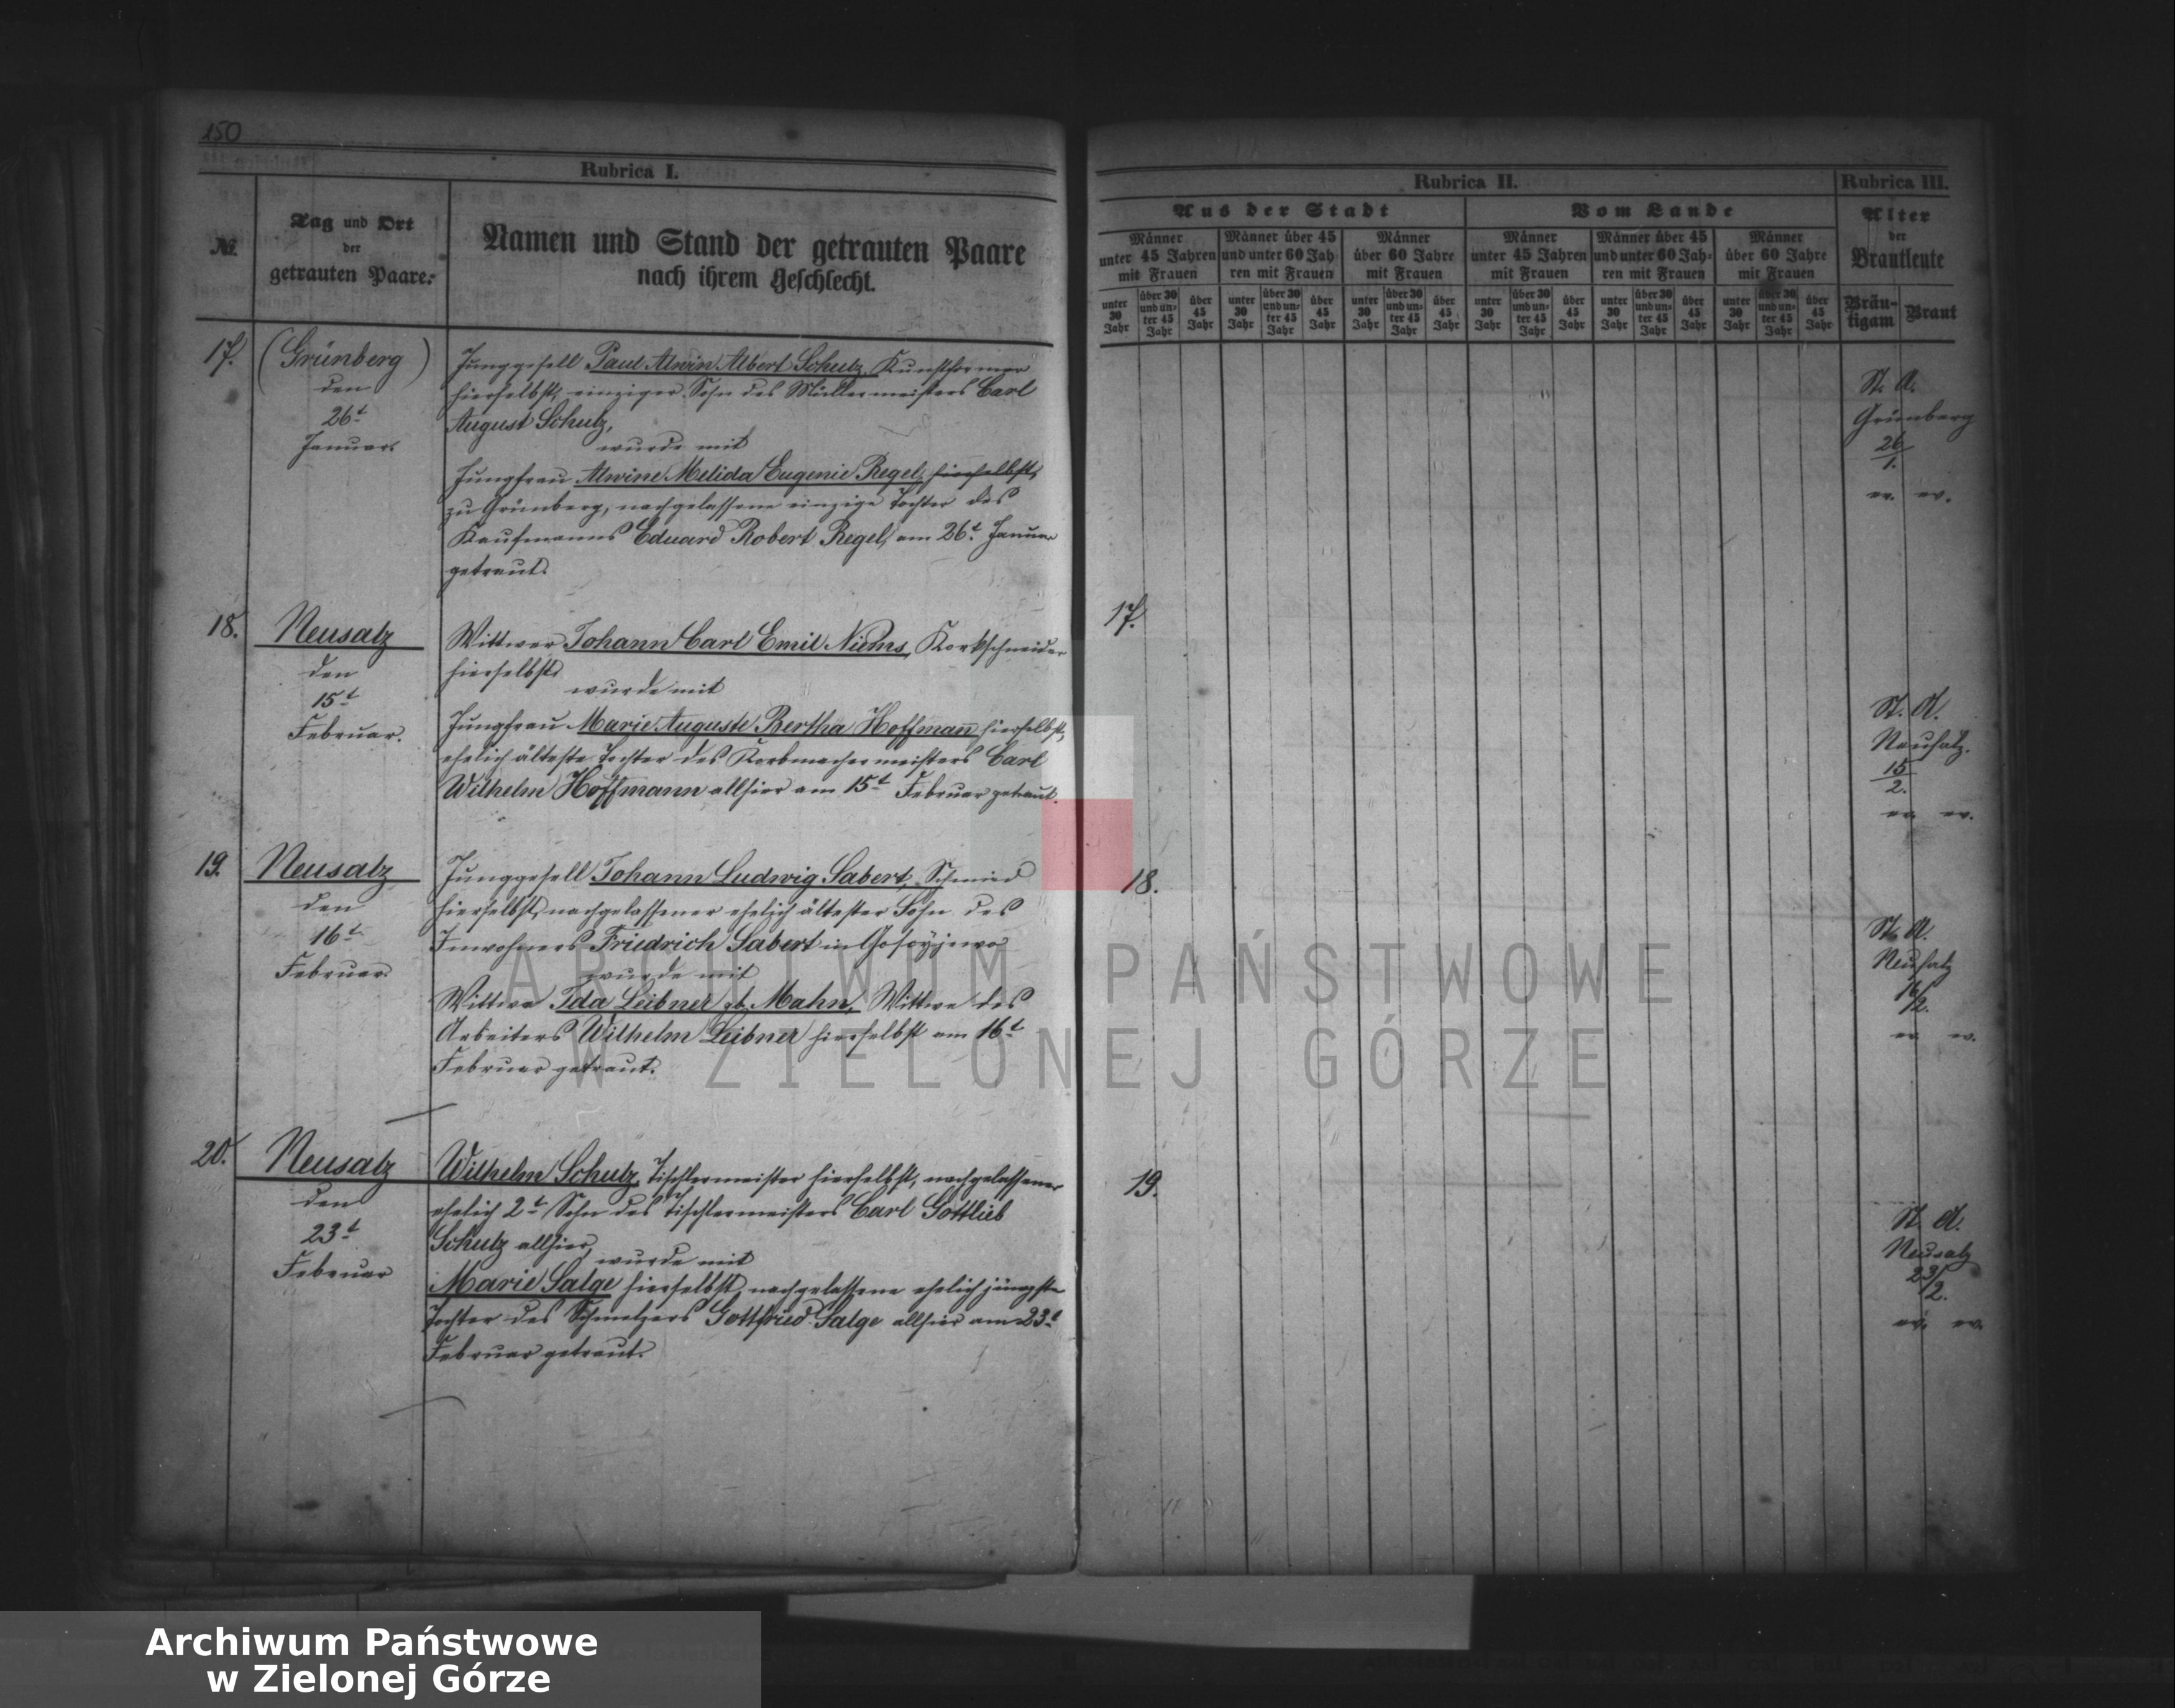 150
Rubrica I.
№.
Tag und Ort
der
getrauten Paare.
Namen und Stand der getrauten Paare
nach ihrem Geschlecht.
17.
(Grünberg)
den
26t
Januar.
Junggesell Paul Alwin Albert Schulz, Kunstformer
hierselbst, einziger Sohn des Müllermeisters Carl
August Schulz,
wurde mit
Jungfrau Alwine Melida Eugenie Regel, hierselbst,
zu Grünberg, nachgelassene einzige Tochter des
Kaufmanns Eduard Robert Regel, am 26t Januar
getraut.
18.
Neusalz
den
15t
Februar.
Wittwer Johann Carl Emil Niems, Korkschneider
hierselbst,
wurde mit
Jungfrau Marie Auguste Bertha Hoffmann hierselbst,
ehelich älteste Tochter des Korbmachermeisters Carl
Wilhelm Hoffmann allhier am 15t Februar getraut.
19.
Neusalz
den
16t
Februar.
Junggesell Johann Ludwig Sabert, Schmied
hierselbst, nachgelassener ehelich ältester Sohn des
Inwohners Friedrich Sabert in
wurde mit
Wittwe Ida Leibner gb. Mahn, Wittwe des
Arbeiters Wilhelm Leibner hierselbst am 16t
Februar getraut.
20.
Neusalz
den
23t
Februar
Wilhelm Schulz, Tischlermeister hierselbst, nachgelassener
ehelich 2t Sohn des Tischlermeisters Carl Gottlieb
Schulz allhier,
wurde mit
Marie Salge hierselbst, nachgelassene ehelich jüngste
Tochter des Schmelzers Gottfried Salge allhier am 23t
Februar getraut.
Rubrica II.
Rubrica III.
Aus der Stadt
Vom Lande
Alter
der
Brautleute
Männer
unter 45 Jahren
mit Frauen
Männer über 45
und unter 60 Jah-
ren mit Frauen
Männer
über 60 Jahre
mit Frauen
Männer
unter 45 Jahren
mit Frauen
Männer über 45
und unter 60 Jah-
ren mit Frauen
Männer
über 60 Jahre
mit Frauen
unter 30 Jahr
über 30 und un- ter 45 Jahr
über 45 Jahr
unter 30 Jahr
über 30 und un- ter 45 Jahr
über 45 Jahr
unter 30 Jahr
über 30 und un- ter 45 Jahr
über 45 Jahr
unter 30 Jahr
über 30 und un- ter 45 Jahr
über 45 Jahr
unter 30 Jahr
über 30 und un- ter 45 Jahr
über 45 Jahr
unter 30 Jahr
über 30 und un- ter 45 Jahr
über 45 Jahr
Bräu-
tigam
Braut
St. A.
Grünberg
26/1.
ev. ev.
17.
St. A.
Neusalz.
15/2.
ev. ev.
18.
St. A.
Neusalz
16/2.
ev. ev.
19.
St. A.
Neusalz
23/2.
ev. ev.
ARCHIWUM PAŃSTWOWE
W ZIELONEJ GÓRZE
Archiwum Państwowe
w Zielonej Górze